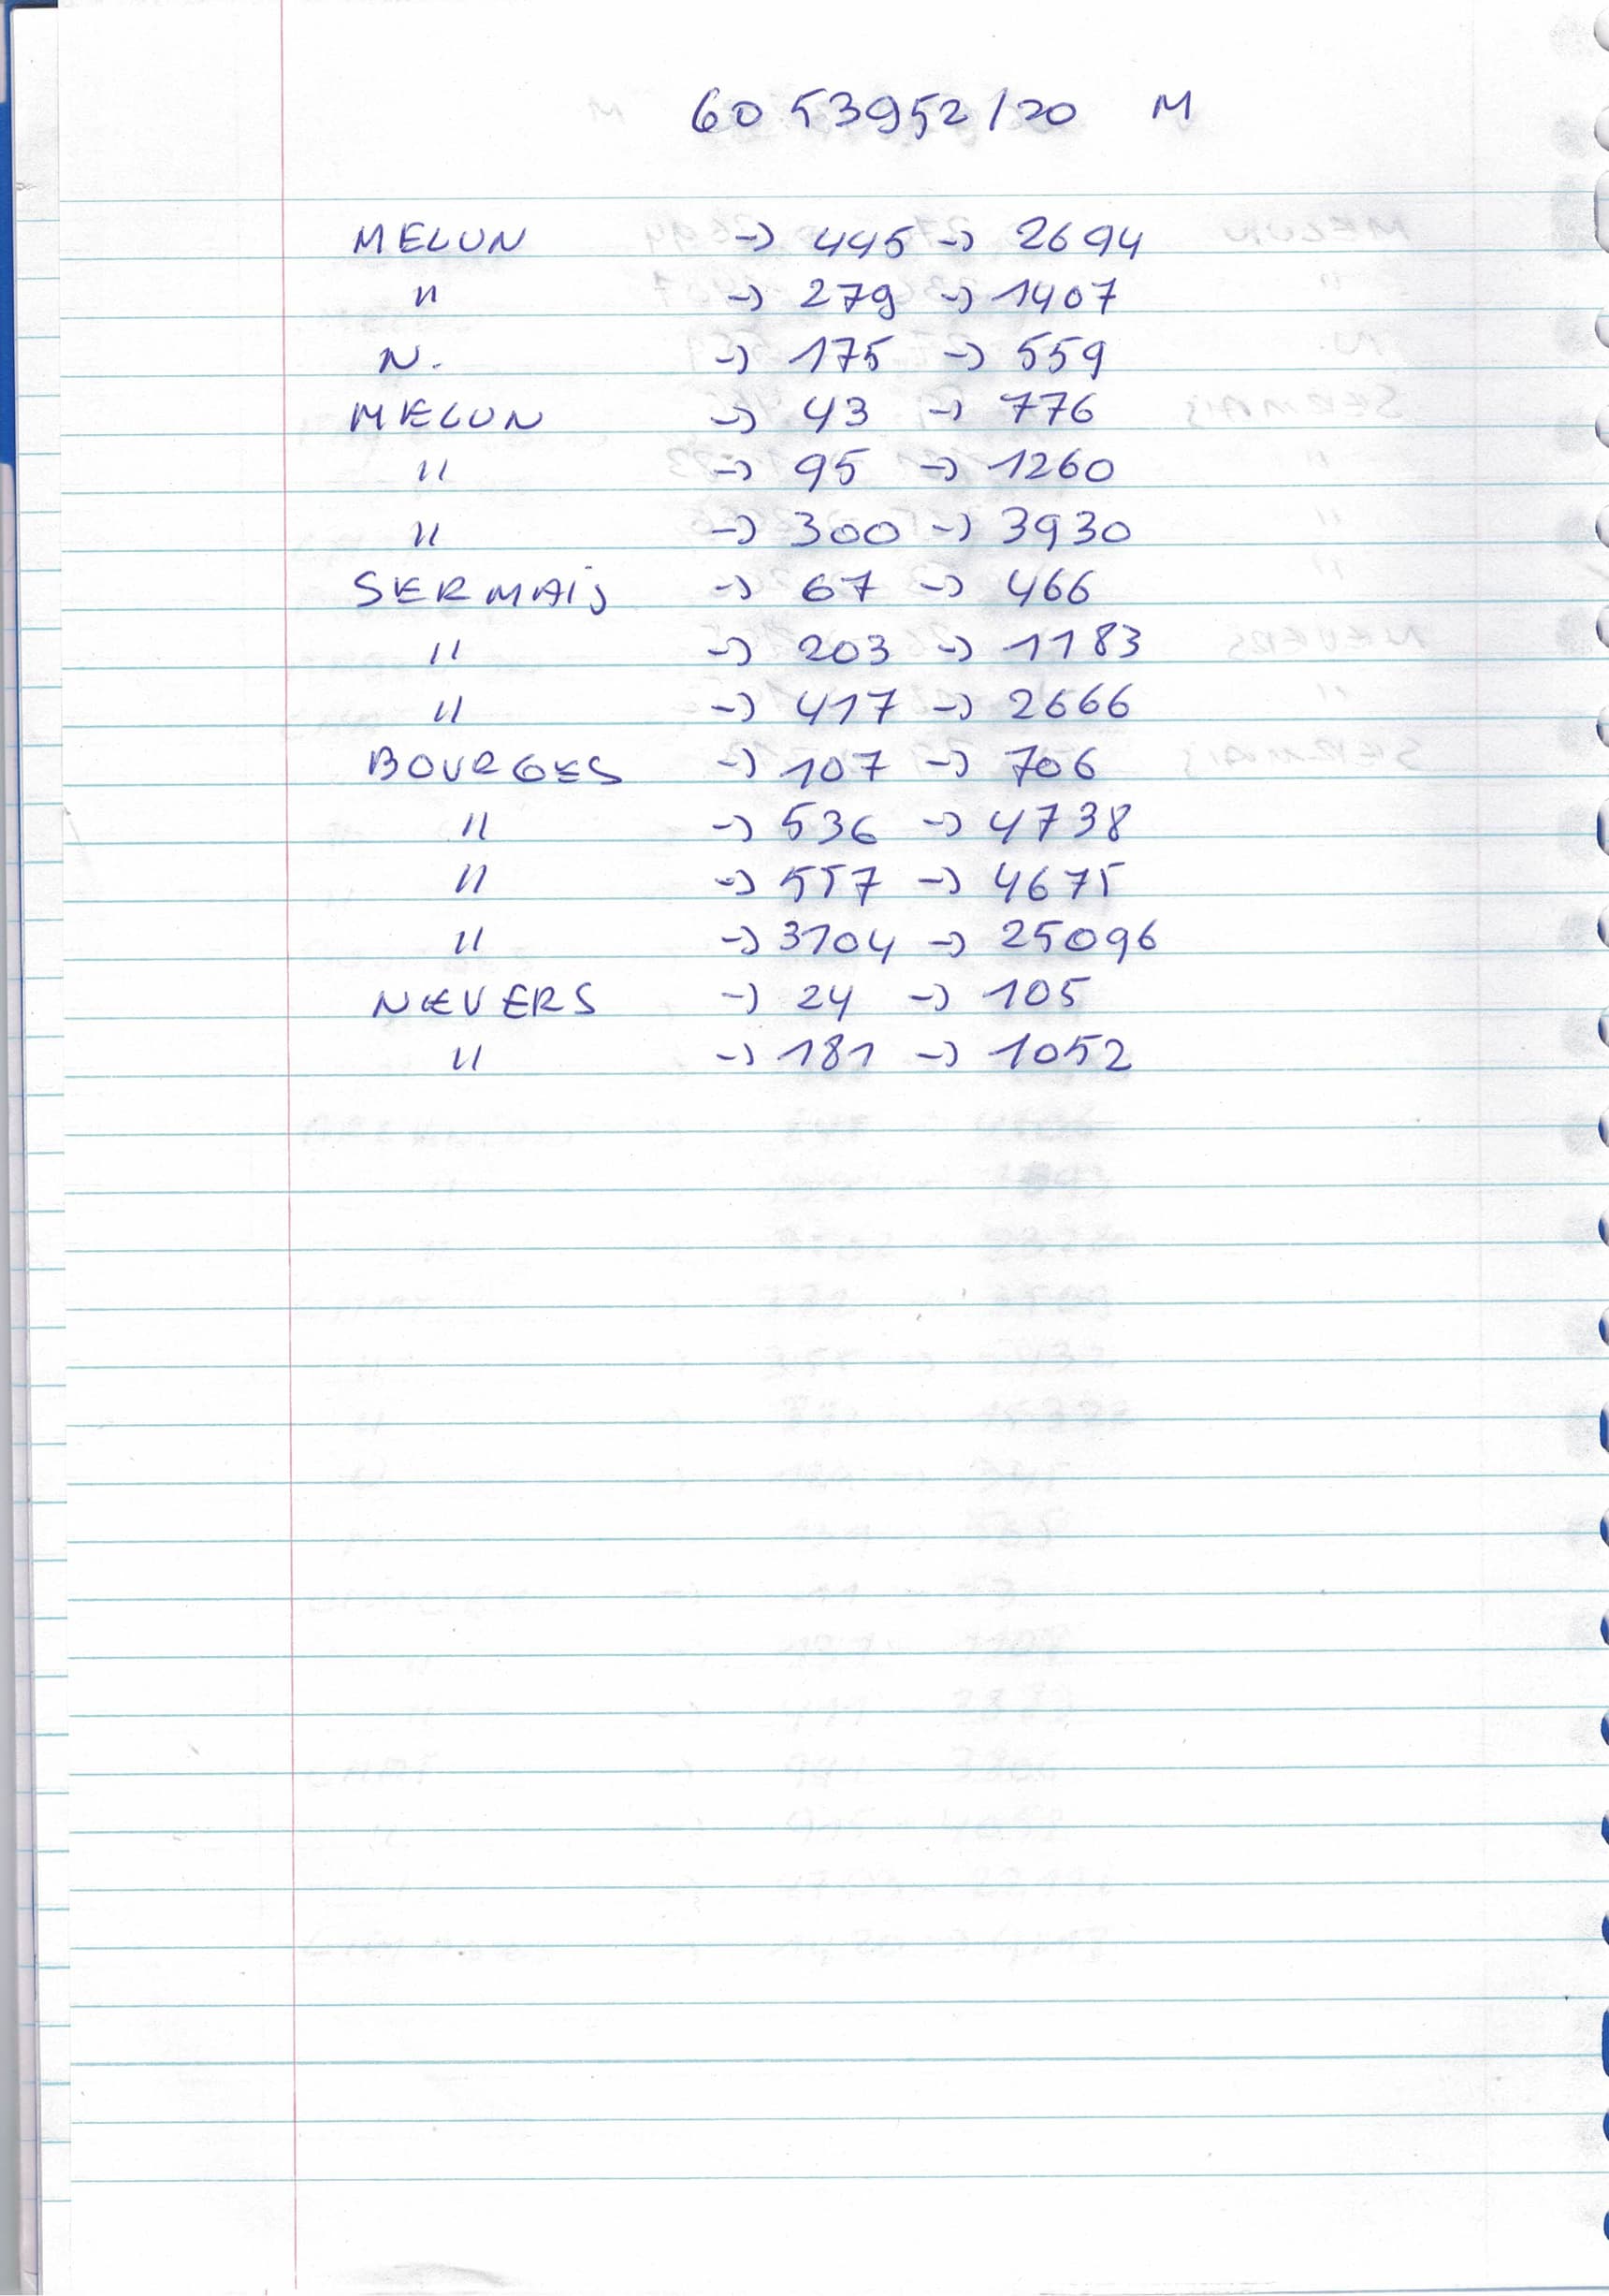 6053952/20 M
MELUN -> 445 -> 2694
" -> 279 -> 1407
N. -> 175 -> 559
MELUN -> 43 -> 776
" -> 95 -> 1260
" -> 300 -> 3930
SERMAiS -> 67 -> 466
" -> 203 -> 1183
" -> 417 -> 2666
BOURGES -> 107 -> 706
" -> 536 -> 4738
" -> 557 -> 4675
" -> 3104 -> 25096
NEVERS -> 24 -> 105
" -> 181 -> 1052